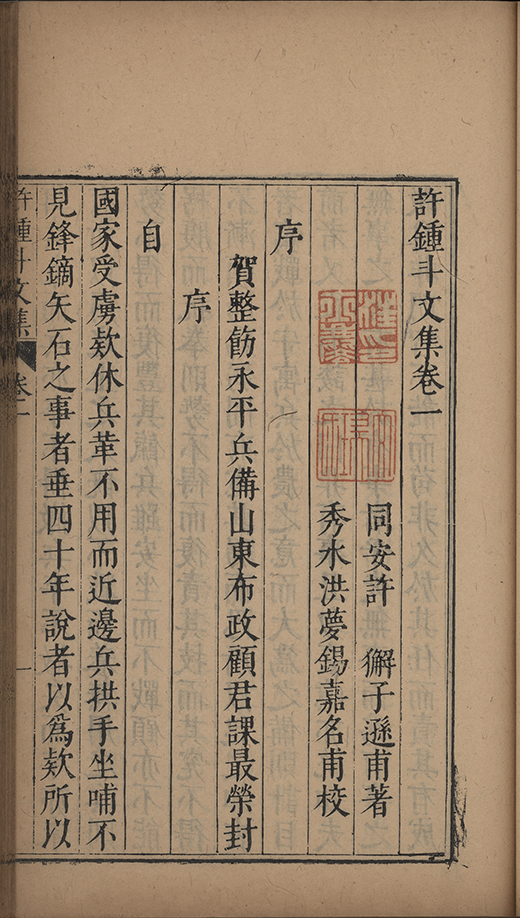 許鍾斗文集卷一
同安許 獬子遜甫著
秀水洪夢錫嘉名甫校
序
賀整飭永平兵備山東布政顧君課最榮封
序
自
國家受虜欵休兵革不用而近邊兵拱手坐哺不
見鋒鏑矢石之事者垂四十年說者以爲欵所以
許鍾斗文集 卷一 一